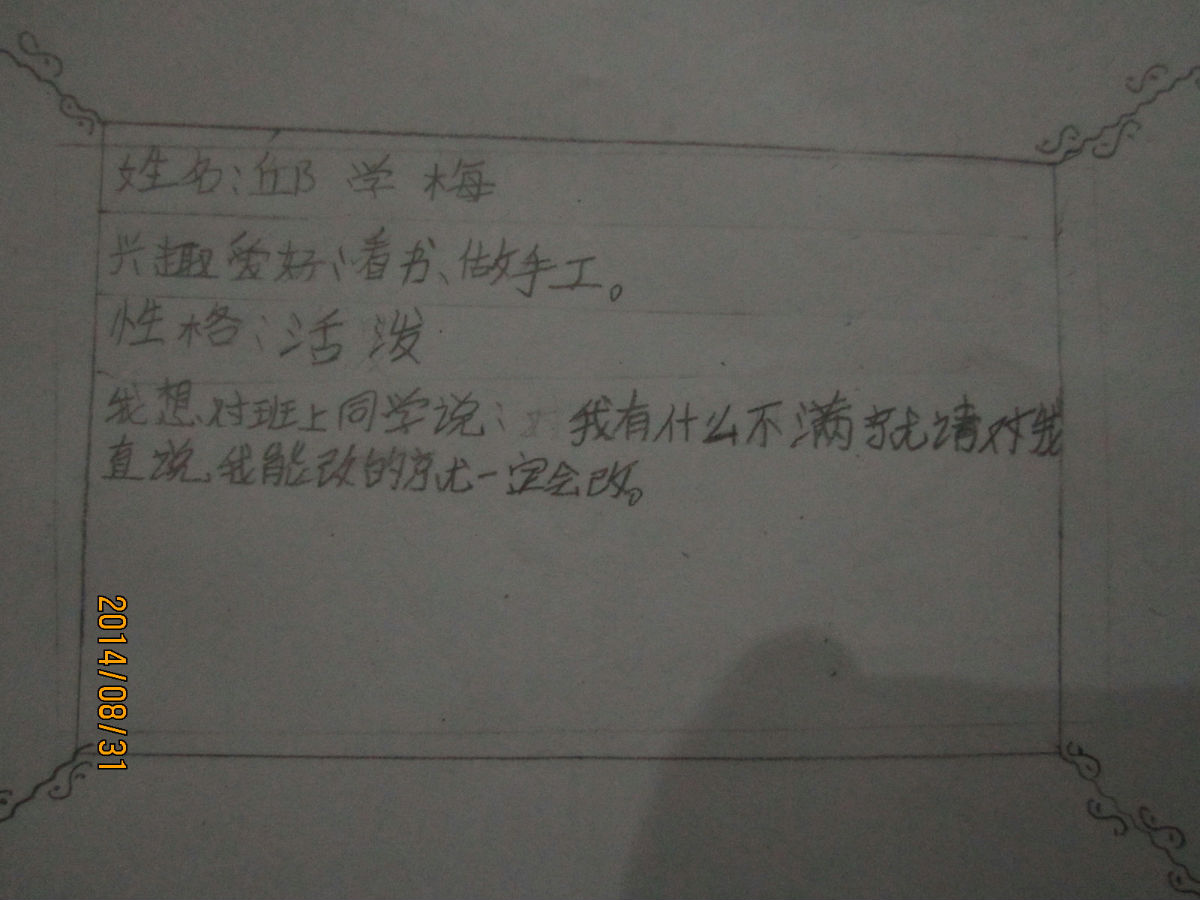 姓名:邱学梅
兴趣爱好:看书、做手工。
性格:活泼
我想对班上同学说: 我有什么不满就请对我
直说,我能改的就一定会改。
2014/08/31